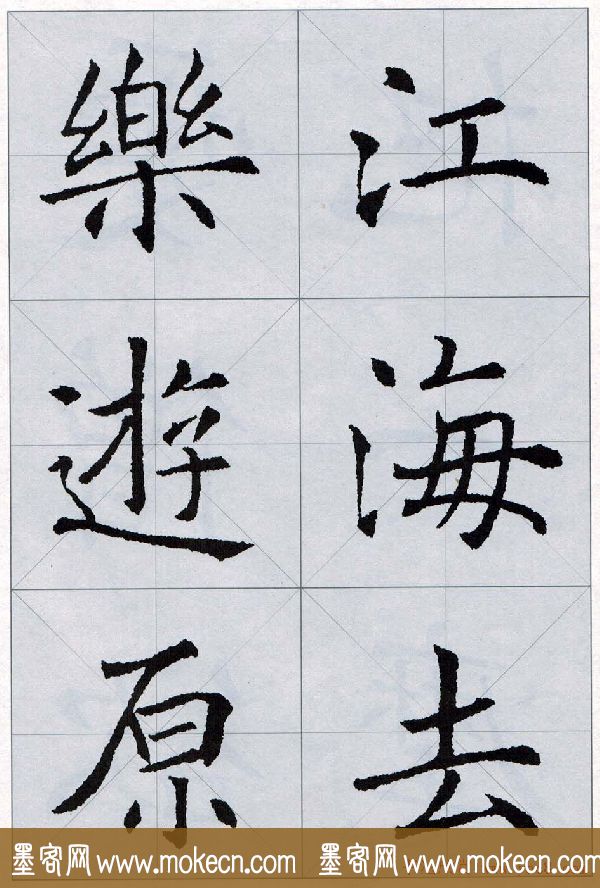 江海去
樂遊原
墨客网 www.mokecn.com 墨客网 www.mokecn.com